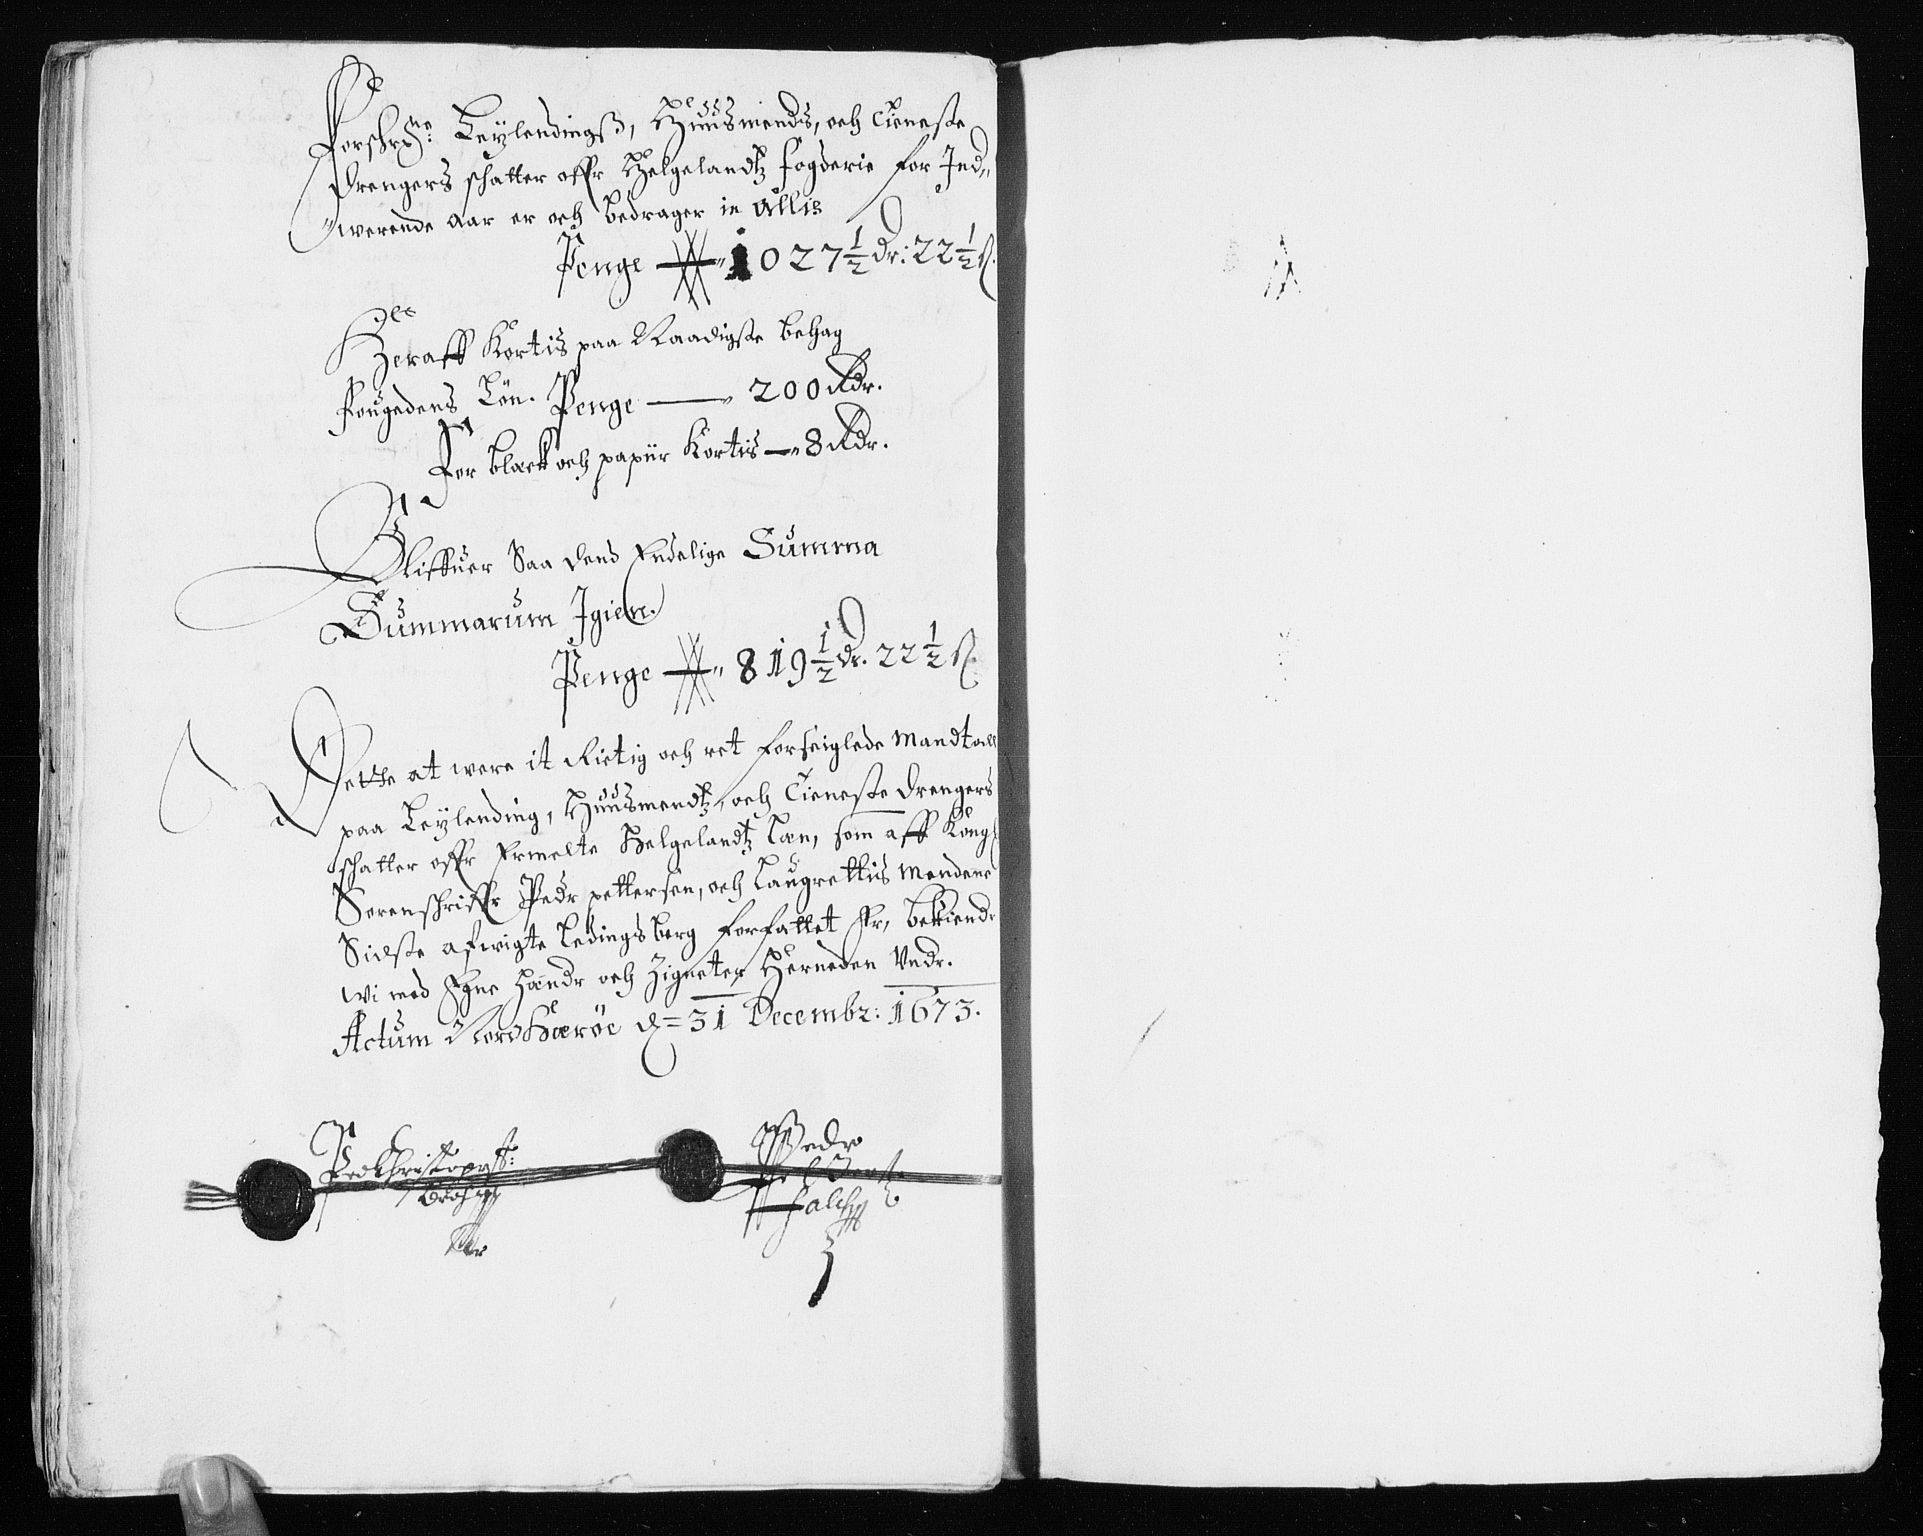 Forschr:ne: Leylendingß, Huusmends, och Tieneste
Drengers schatter offr Helgelandtz fogderie for Ind„
„werende aar er och bedrager in Allis
Penge — 1027½ dr: 22½ ß.
Heraff Kortis paa Naadigste behag
Fougedens Løn. Penge — 200 Rdr.
For blæck och papiir Kortis — 8 Rdr.
Bliffuer Saa dend Endelige Summa
Summarum Igien.
Penge — 819½ dr. 22½ ß.
Dette at were it Rictig och ret forseiglede Mandtall
paa Leylending, Huusmendtz, och Tieneste drengers
schatter offr Ermelte Helgelandtz Læn, som aff Kong:
Sorenschriffr Pedr pettersen, och Laugrettis Mendene
Sidste afwigte Ledingsberg forfattet Er, bekiendr
wi med Egne Hændr och Zigneter Herneden Vndr.
Actum Nord Hærøe d= 31 Decembr: 1673.
Ped Christopers:
Pedr
falch